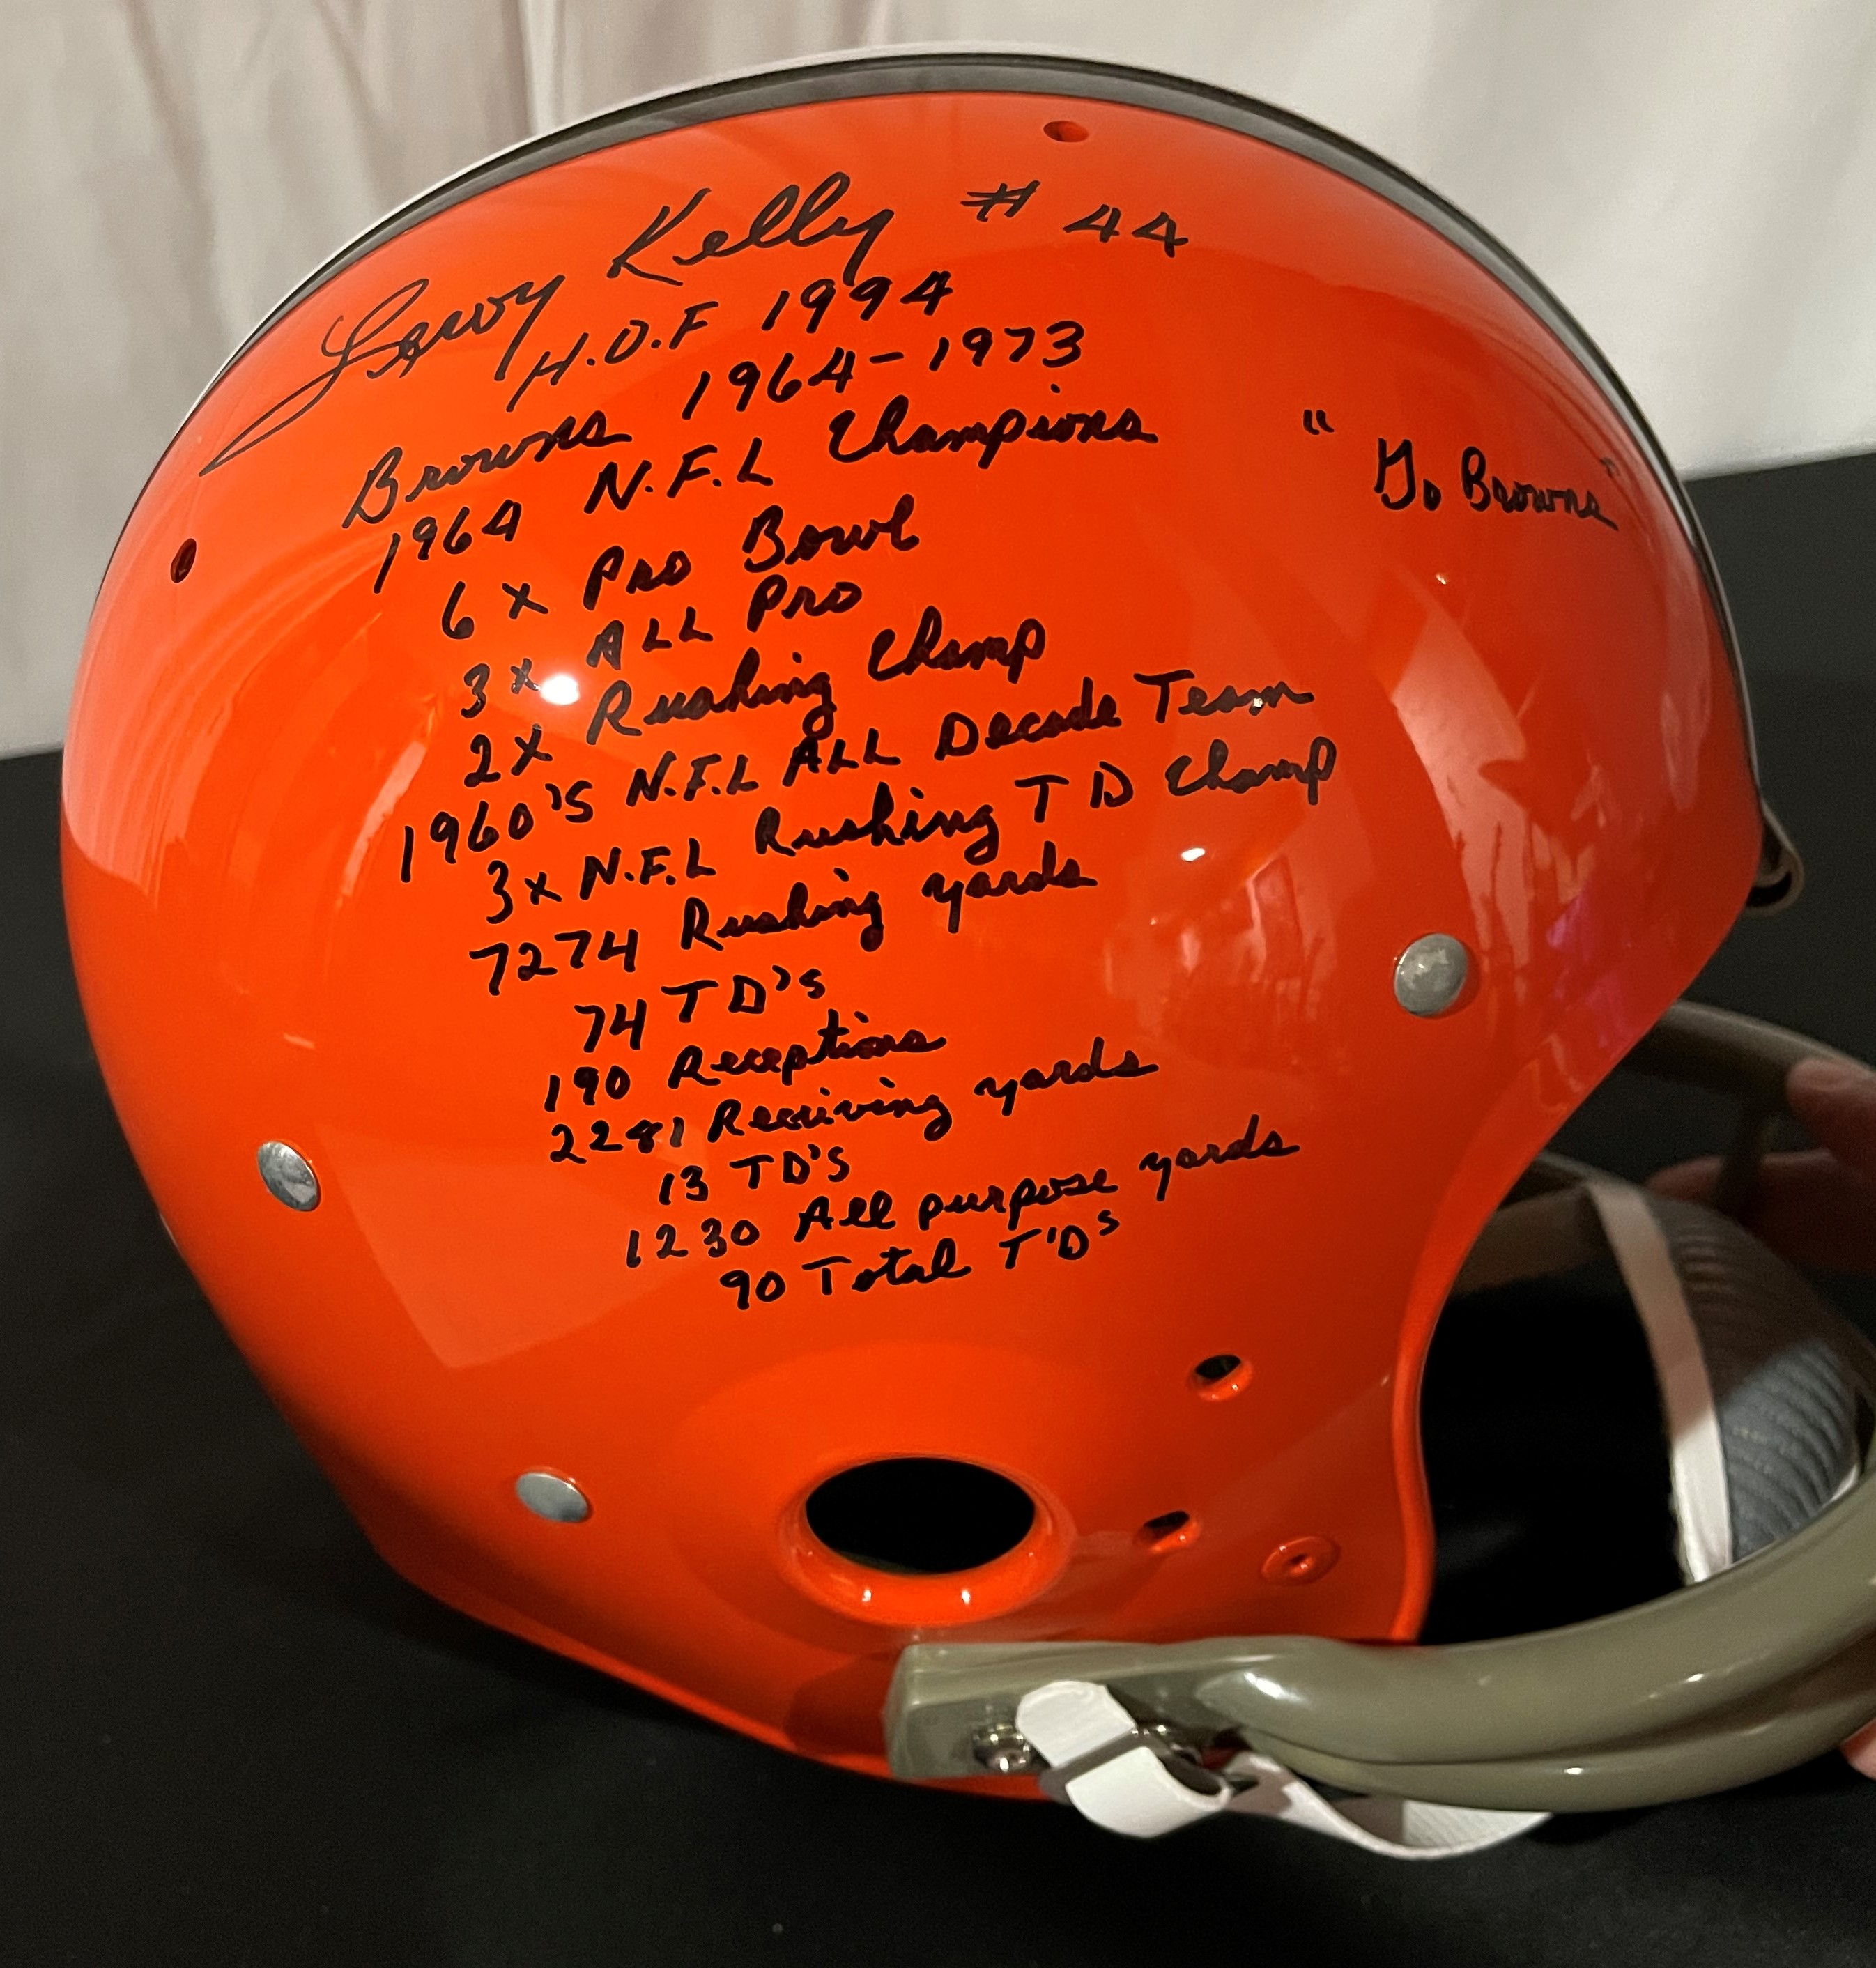 Leroy Kelly # 44
H.O.F 1994
Browns 1964-1973
1964 N.F.L Champions
6 x Pro Bowl
3x ALL Pro
2x Rushing Champ
1960's N.F.L ALL Decade Team
3x N.F.L Rushing TD Champ
7274 Rushing yards
74 TD's
190 Receptions
2281 Receiving yards
13 TD's
1230 All purpose yards
90 Total T'Ds
"Go Browns"